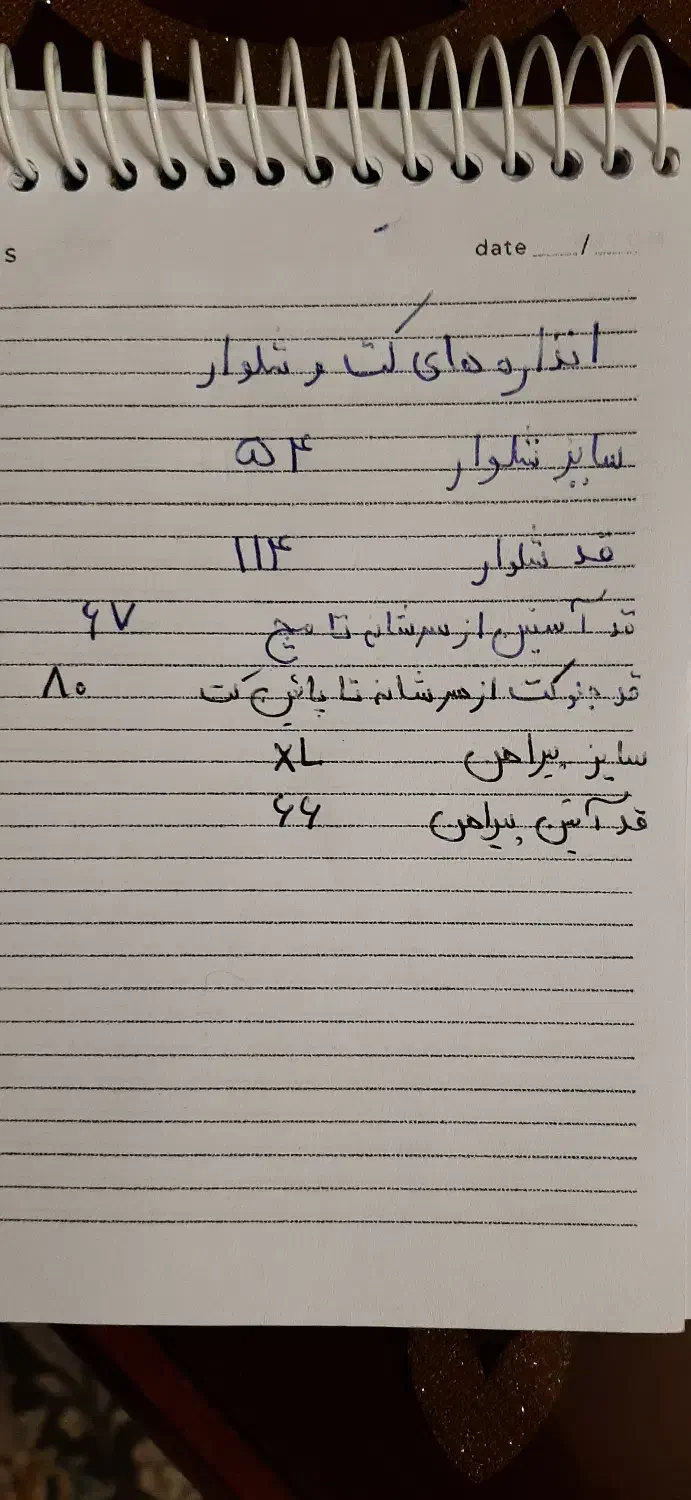 s date / 
اندازه های کت و شلوار
سایز شلوار ۵۴
قد شلوار ۱۱۴
قد آستین از سرشانه تا مچ ۶۷
قد جلو کت از سرشانه تا پائین کت ۸۰
سایز پیراهن XL
قد آستین پیراهن ۶۶